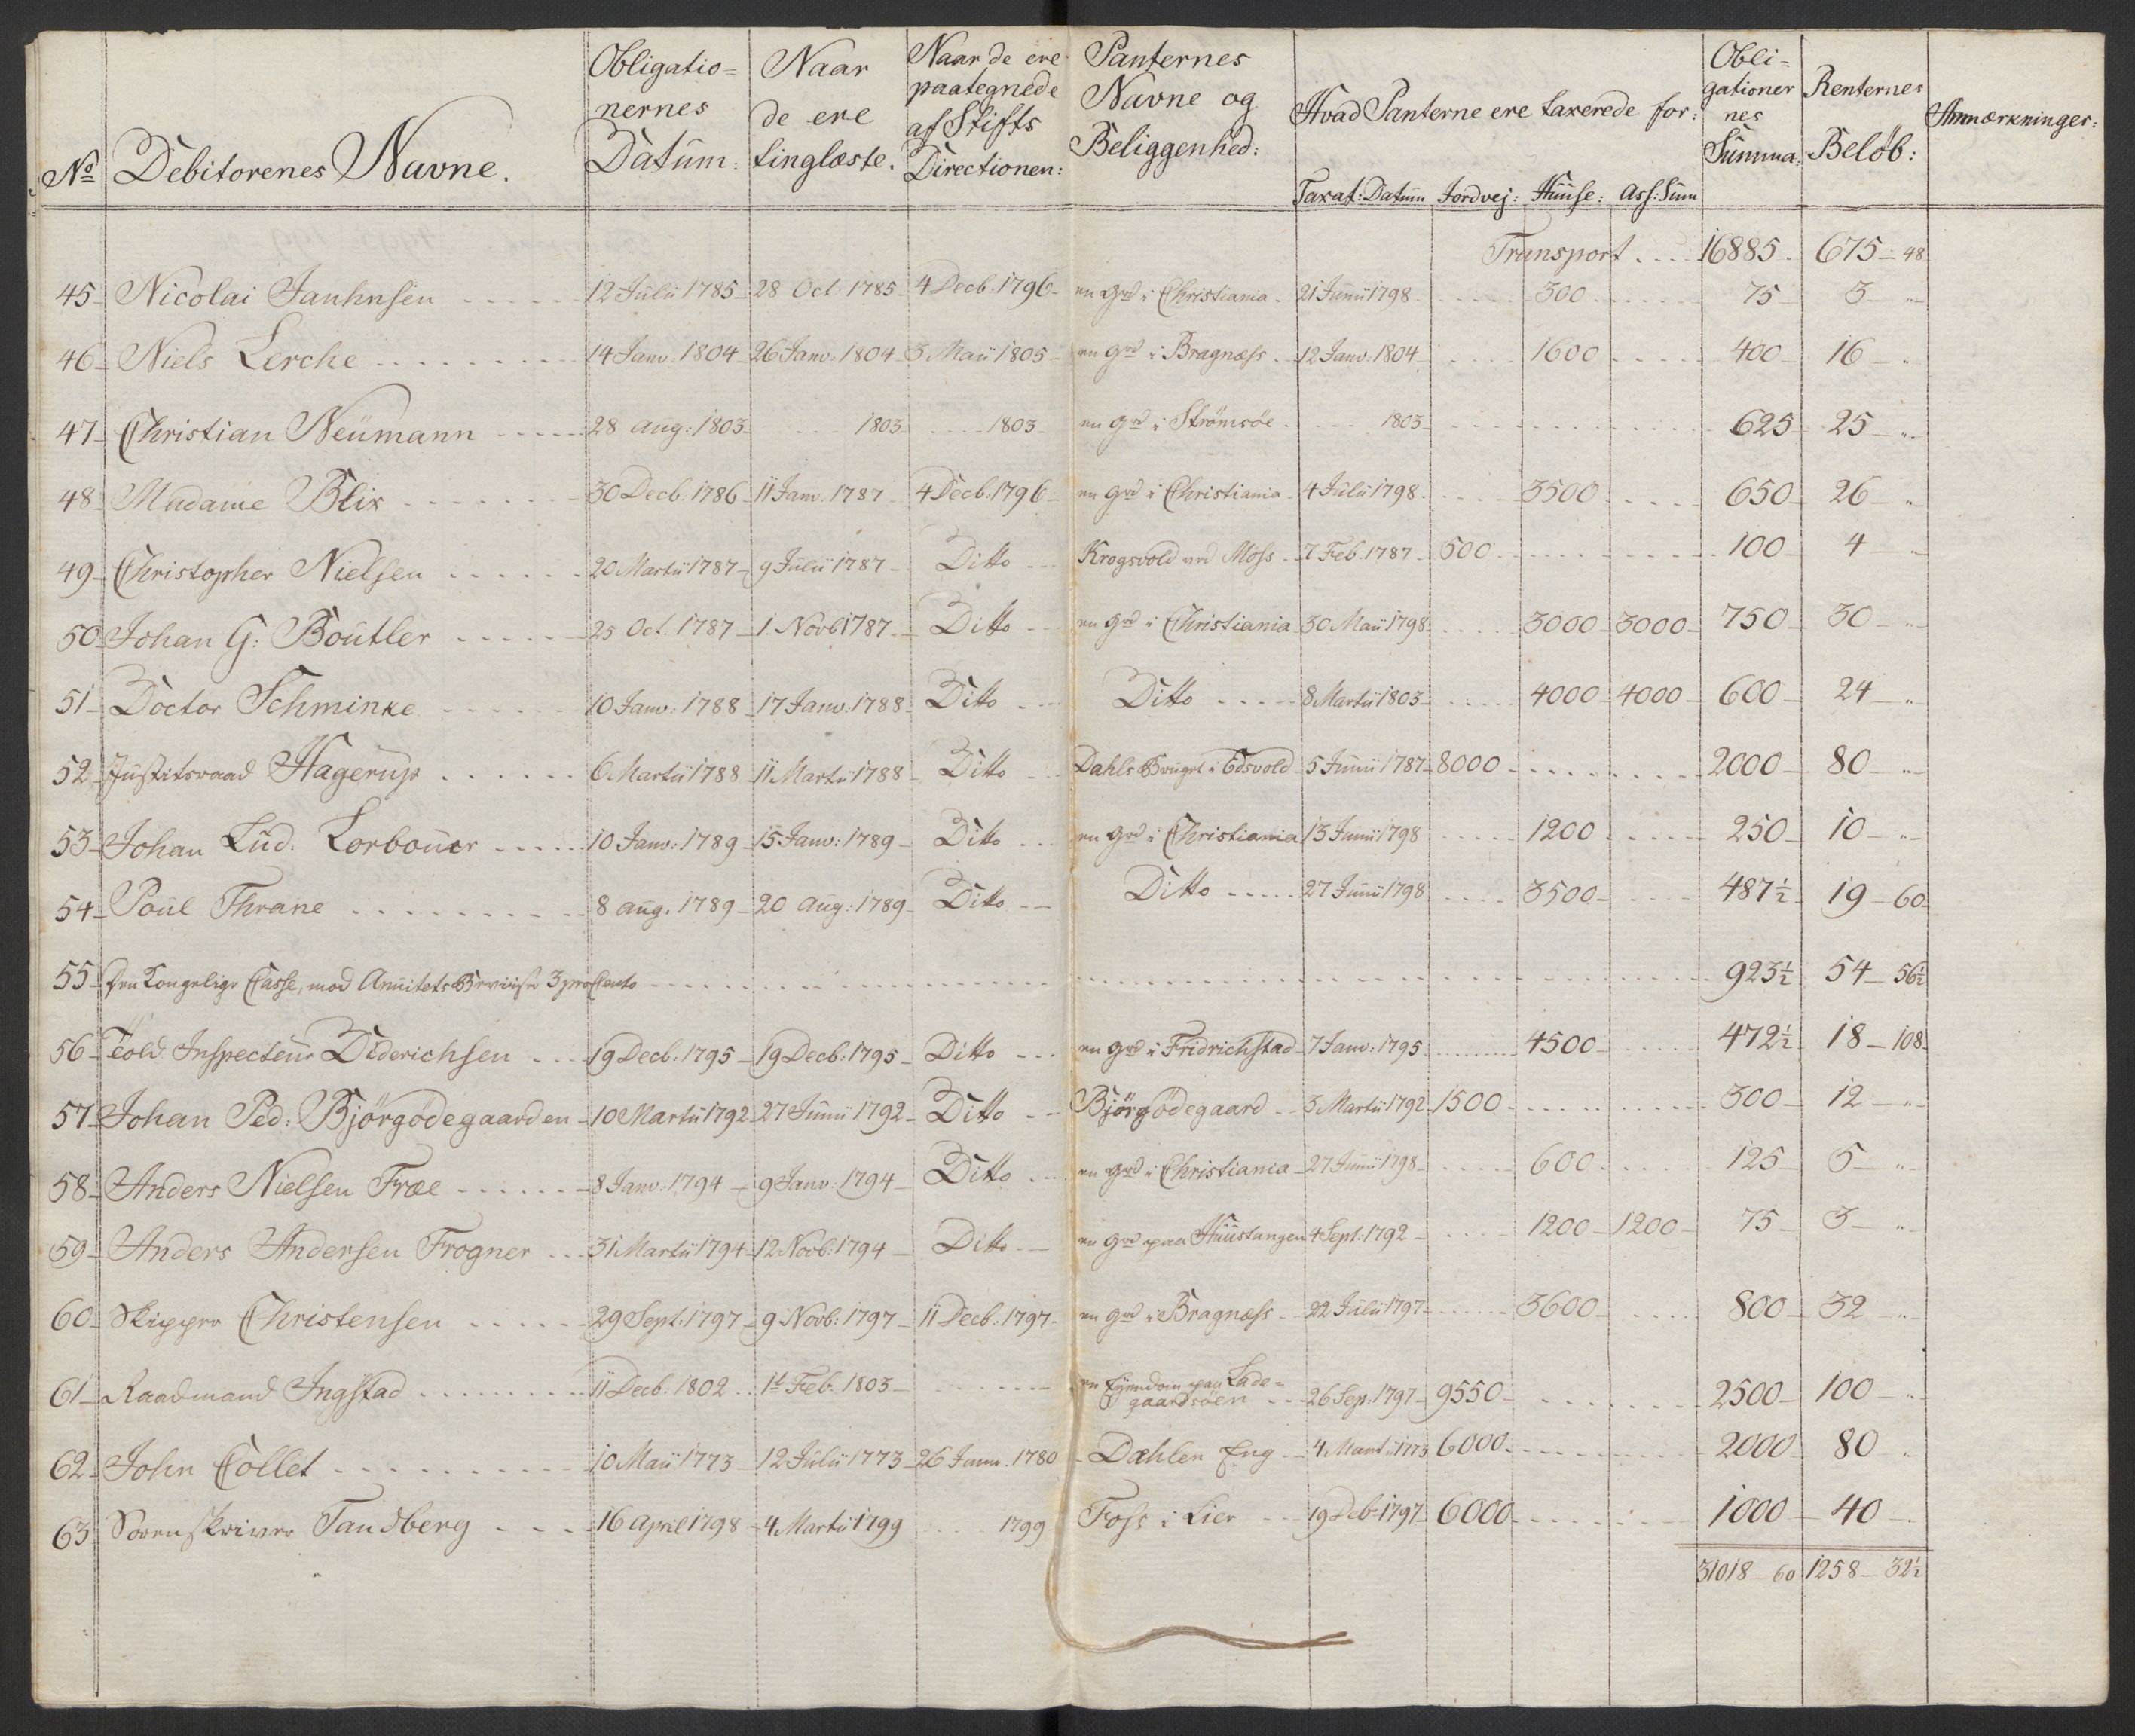 No Debitorenes Navne. Obligationernes Datum: Naar de ere tinglæste. Naar de ere paategnede af Stifts Directionen: Panternes Navne og Beliggenhed: Hvad Panterne ere taxerede for: Obligationernes Summa: Renternes Beløb: Anmærkninger:
Taxat: Datum Jordvej: Huuse: Ass: Sum
Transport .... 16885. 675 - 48
45 Nicolai Jauhnsen 12 Julii 1785 28 Oct 1785 4 Decb. 1796 en grd i Christiania 21 Junii 1798 300 75 3 "
46 Niels Lerche 14 Janv. 1804 26 Janv. 1804 3 Maii 1805 en grd i Bragnæss 12 Janv. 1804 1600 400 16 "
47 Christian Neumann 28 Aug: 1803 1803 1803 en grd i Strömsöe 1803 625 25 "
48 Madame Blix 30 Decb. 1786 11 Janv. 1787 4 Decb. 1796 en grd i Christiania 4 Julii 1798 3500 650 26 "
49 Christopher Nielsen 20 Martii 1787 9 Julii 1787 Ditto Krogsvold ved Moss 7 Feb. 1787 500 100 4 "
50 Johan G: Boutler 25 Oct. 1787 1. Novb 1787 Ditto en grd i Christiania 30 Maii 1798 3000 3000 750 30 "
51 Doctor Schminke 10 Janv: 1788 17 Janv. 1788 Ditto Ditto 8 Martii 1803 4000 4000 600 24 "
52 Justitsraad Hagerup 6 Martii 1788 11 Martii 1788 Ditto Dahls Bruget i Edsvold 5 Junii 1787 8000 2000 80 "
53 Johan Lud. Lorbouer 10 Janv: 1789 15 Janv: 1789 Ditto en grd i Christiania 13 Junii 1798 1200 250 10 "
54 Poul Thrane 8 Aug. 1789 20 Aug: 1789 Ditto Ditto 27 Junii 1798 3500 487½ 19 - 60
55 Den Kongelige Casse, mod Anuitets Beviise 3 pro Cento 923½ 54 - 56½
56 Told Inspecteur Diderichsen 19 Decb. 1795 19 Decb. 1795 Ditto en grd i Fridrichstad 7 Janv: 1795 4500 472½ 18 - 108
57 Johan Ped: Björgödegaarden 10 Martii 1792 27 Junii 1792 Ditto Björgödegaard 3 Martii 1792 1500 300 12 "
58 Anders Nielsen Fræ 8 Janv: 1794 9 Janv: 1794 Ditto en grd i Christiania 27 Junii 1798 600 125 5 "
59 Anders Andersen Frogner 31 Martii 1794 12 Novb: 1794 Ditto en grd paa Huustangen 4 Sept: 1792 1200 1200 75 3 "
60 Skipper Christensen 29 Sept: 1797 9 Novb: 1797 11 Decb. 1797 en grd i Bragnæss 22 Julii 1797 3600 800 32 "
61 Raadmand Ingstad 11 Decb. 1802 1t Feb. 1803 en Eyendom paa Lade-
gaardsöen 26 Sep. 1797 9550 2500 100 "
62 John Collet 10 Maii 1773 12 Julii 1773 26 Janv. 1780 Dæhlen Eng 4 Martii 1773 6000 2000 80 "
63 Sorenskriver Tandberg 16 April 1798 4 Martii 1799 1799 Foss i Lier 19 Deb 1797 6000 1000 40 "
31018 - 60 1258 - 32½